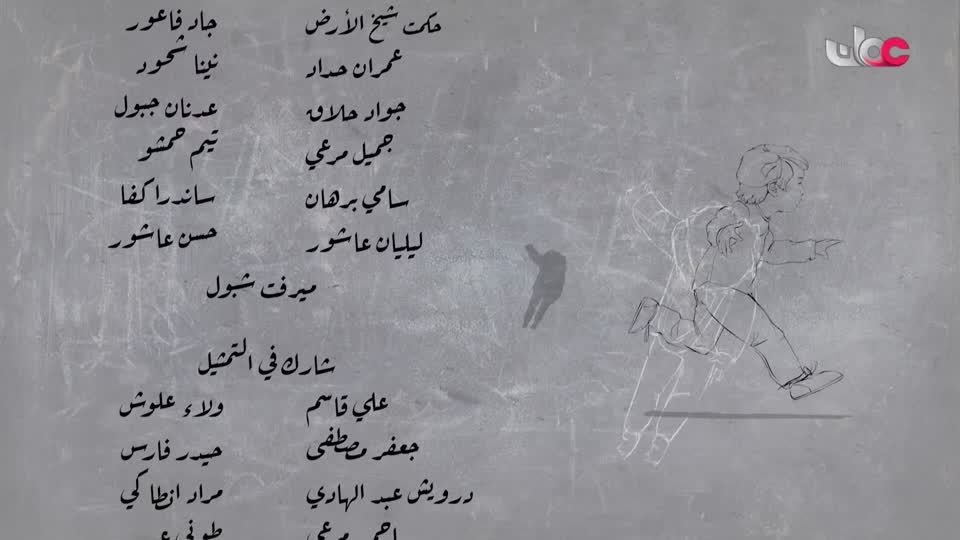 حكمت شيخ الأرض جاد فاعور
عمران حداد نينا شحود
جواد حلاق عدنان جبول
جميل مرعي تيم حمشو
سامي برهان ساندرا كفا
ليليان عاشور حسن عاشور
ميرفت شبول
شارك في التمثيل
علي قاسم ولاء علوش
جعفر مصطفى حيدر فارس
درويش عبد الهادي مراد انطاكي
مرعي طوني